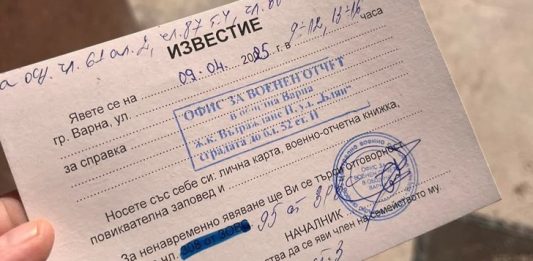 на осн. чл. 61 ал. 2, чл. 87 т. 4, чл.
ИЗВЕСТИЕ
Явете се на 09.04. 2025 г. в 9-12, 13-16 часа
гр. Варна, ул.
ОФИС ЗА ВОЕНЕН ОТЧЕТ
в област Варна
ж.к. Възраждане
сградата до бл. 32 ет. II
за справка
Носете със себе си: лична карта, военно-отчетна книжка,
повиквателна заповед и
За ненавременно явяване ще Ви се търси отговорност
по чл. 95 от
НАЧАЛНИК
ства да се яви член на семейството му.